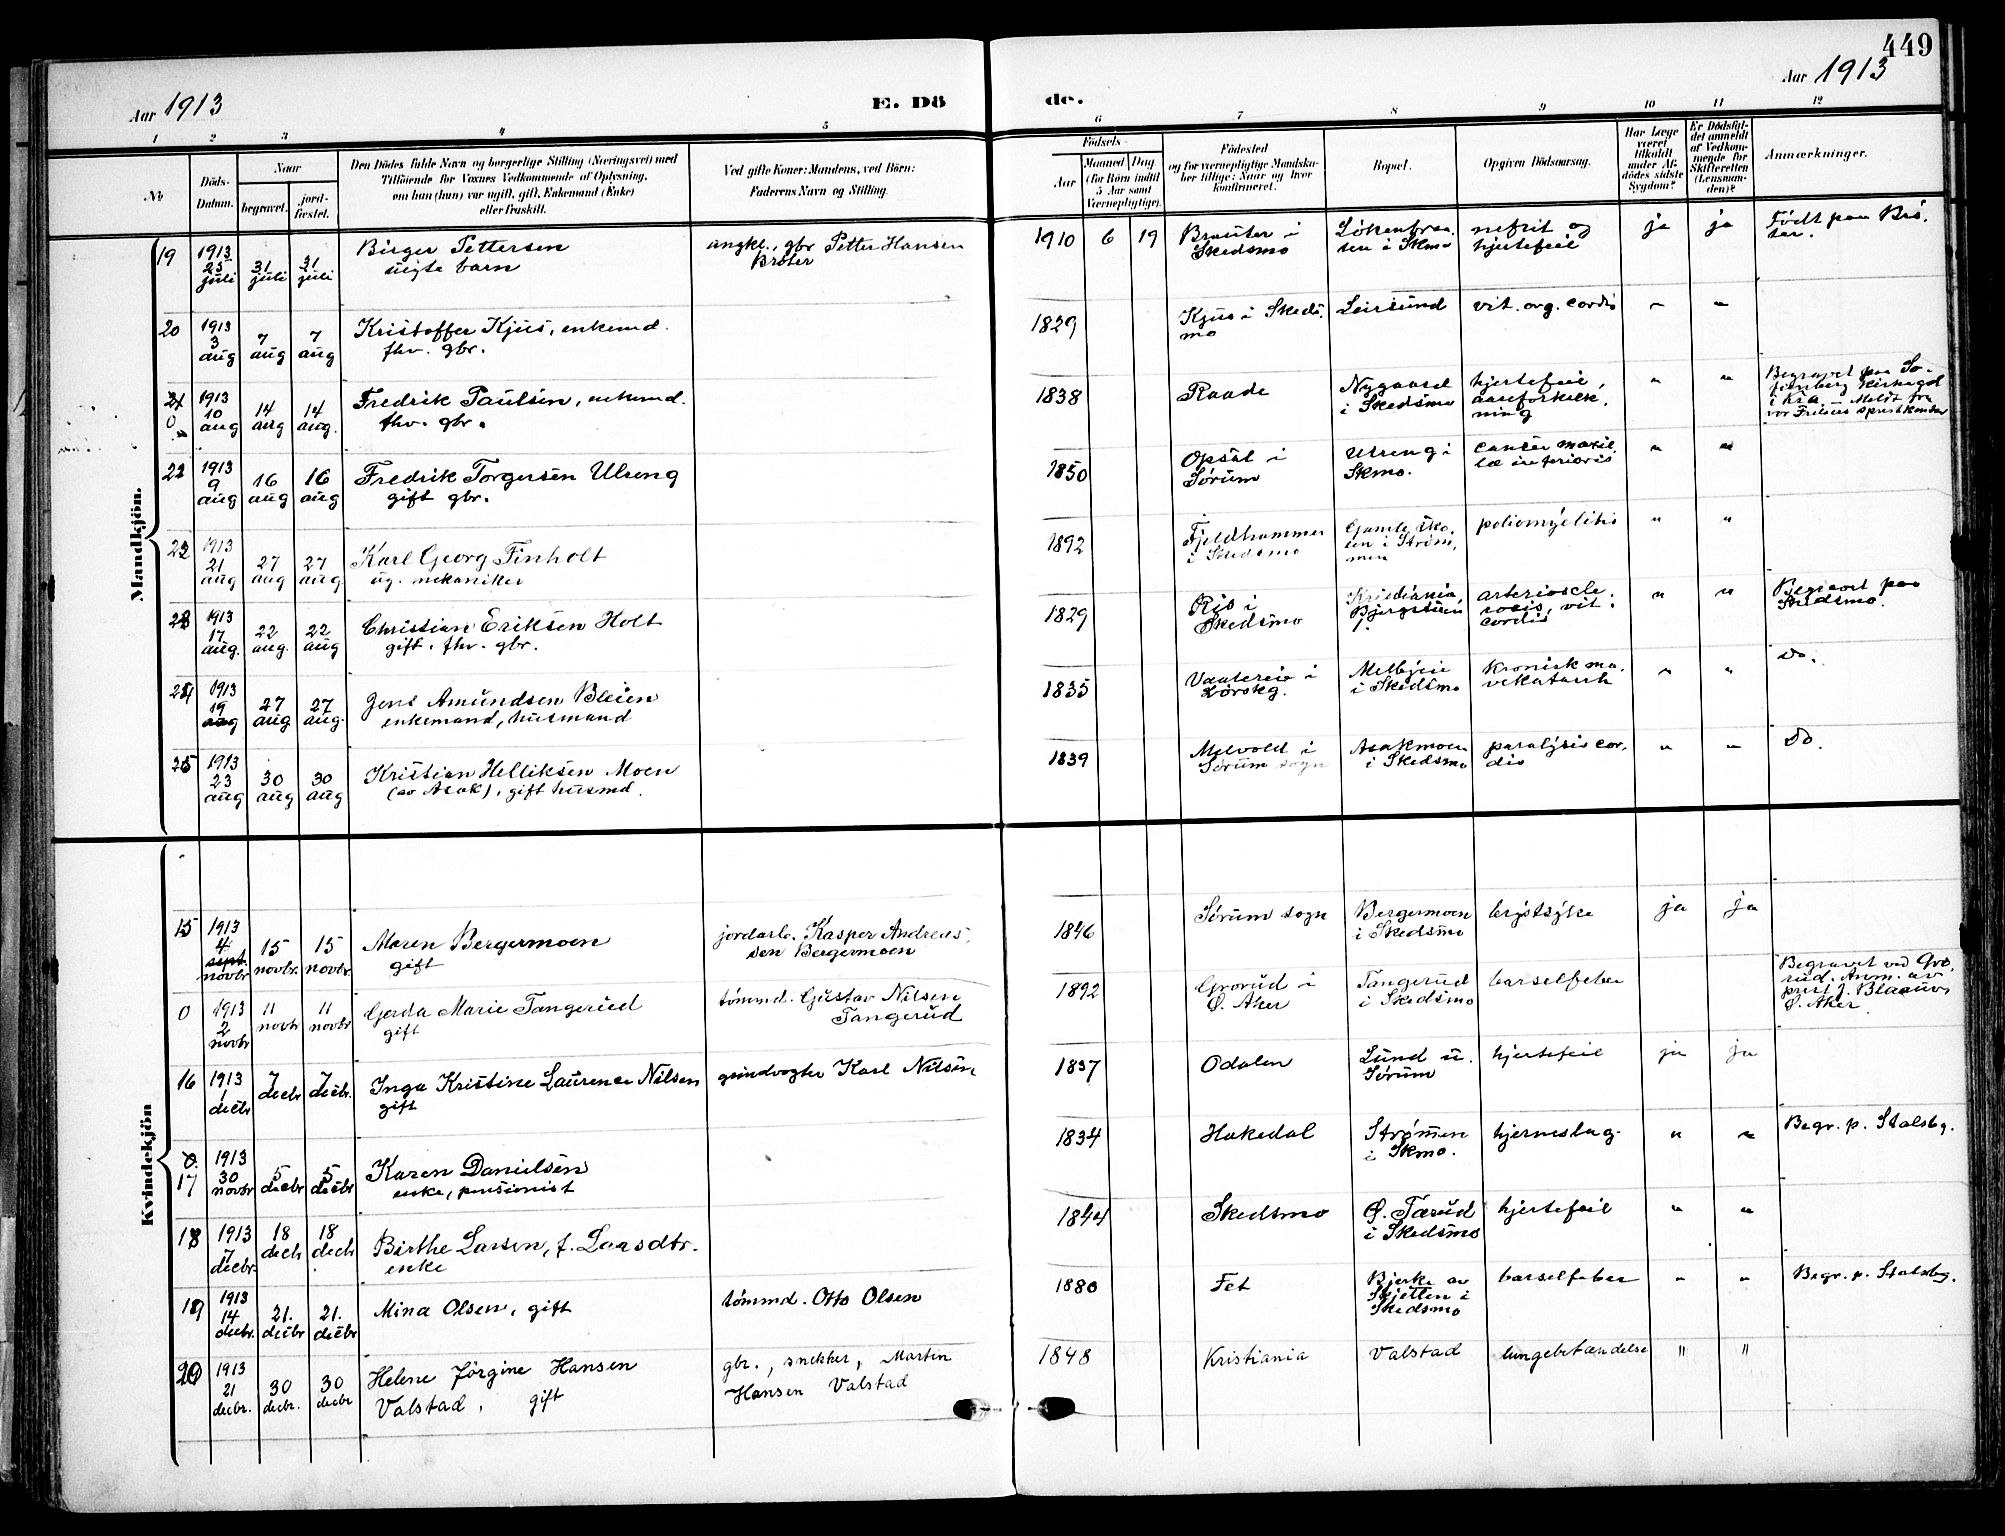 449
Aar 1913
E. Dö
de.
Aar 1913
1 2 3 4 5 6 7 8 9 10 11 12
No
Döds-
Datum.
Naar
begravet.
jord-
fæstet.
Den Dödes fulde Navn og borgerlige Stilling (Næringsvei) med
Tilföiende for Voxnes Vedkommende af Oplysning,
om han (hun) var ugift, gift, Enkemand (Enke)
eller fraskilt.
Ved gifte Koner: Mandens, ved Börn:
Faderens Navn og Stilling.
Födsels-
Aar
Maaned
Dag
(for Börn indtil
5 Aar samt
Værnepligtige).
Födested
og for værnepligtige Mandska-
ber tillige: Naar og hvor
konfirmeret.
Bopæl.
Opgiven Dödsaarsag.
Har Læge
været
tilkaldt
under Af-
dödes sidste
Sygdom?
Er Dödsfal-
det anmeldt
af Vedkom-
mende for
Skifteretten
(Lensman-
den)?
Anmærkninger.
Mandkjön.
19 1913 25 juli 31 juli 31 juli
Birger Pettersen
uegte barn
ungkl., gbr Petter Hansen
Bråter
1910 6 19
Brauter i
Skedsmo
Løkenbraa-
ten i Skmo
nefrit og
hjertefeil
ja ja
Født paa Brå-
ter.
20 1913 3 aug 7 aug 7 aug
Kristoffer Kjus, enkemd.
fhv. gbr.
1829
Kjus i Skeds-
mo
Leirsund
vit. org. cordis
" "
21 0 1913 10 aug 14 aug 14 aug.
Fredrik Paulsen, enkemd.
fhv. gbr.
1838
Raade
Nygaard
i Skedsmo
hjertefeil,
aareforkalk-
ning
" "
Begravet paa So-
fienberg kirkegd
i Kra. – Meldt fra
vor Frelsers prestkontor
22 1913 9 aug 16 aug 16 aug
Fredrik Torgersen Ulreng
gift gbr.
1850
Opsal i
Sørum
Ulreng i
Skmo.
cancer maxil-
læ inferioris
" "
22 1913 21 aug 27 aug 27 aug
Karl Georg Finholt
ug. mekaniker
1892
Fjeldhammer
i Skedsmo
Gamle sko-
len i Strøm-
men
poliomyelitis
" "
23 1913 17 aug. 22 aug. 22 aug
Christian Eriksen Holt
gift. fhv. gbr.
1829
Ris i
Skedsmo
Kristiania,
arterioscle-
rosis, vit.
cordis
" "
Begravet paa
Skedsmo.
24 1913 19 aug 27 aug 27 aug.
Jens Amundsen Bleien
enkemand, husmand
1835
i
Lørskg.
i Skedsmo
kronisk ma-
vekatarrh
" "
Do.
25 1913 23 aug 30 aug 30 aug
Kristian Helliksen Moen
(av Asak), gift husmd.
1839
Melvold i
Sørum sogn
Asakmoen
i Skedsmo
paralysis cor-
dis
" "
Do.
Kvindekjön
15 1913 4 sept. novbr 15 novbr. 15 novbr.
Maren Bergermoen
gift
jordarb. Kasper Andreas-
sen Bergermoen
1846
Sørum sogn
Bergermoen
i Skedsmo
brystsyke
ja ja
0 1913 2 novbr 11 novbr 11 novbr
Gerda Marie Tangerud
gift
tømmd. Gustav Nilsen
Tangerud
1892
Grorud i
Ø. Aker
Tangerud
i Skedsmo
barselfeber
Begravet ved Gro-
rud. Anm. av
prest J. Blaauw,
Ø. Aker
16 1913 1 decbr 7 decbr 7 decbr.
Inga Kristine Laurence Nilsen
gift
grindvogter Karl Nilsen
1837
Odalen
Lund u.
Sørum
hjertefeil
ja ja
0. 17 1913 30 novbr 5 decbr 5 decbr
Karen Danielsen
enke, pensionist
1834
Hakedal
Strømmen
i Skmo.
hjerneslag.
" "
Begr. p. Stalsbg.
18 1913 7 decbr. 18 decbr 18 decbr
Birthe Larsen, f. Larsdtr.
enke
1844
Skedsmo
Ø. Tærud
i Skedsmo
hjertefeil
" "
19 1913 14 decbr. 21. decbr 21. decbr
Mina Olsen, gift
tømmd. Otto Olsen
1880
Fet
Bjerke av
Skjetten i
Skedsmo
barselfeber
" "
Begr. p. Stalsbg.
20 1913 21 decbr. 30 decbr. 30 decbr
Helene Jørgine Hansen
Valstad, gift
gbr., snekker, Martin
Hansen Valstad
1848
Kristiania
Valstad
lungebetændelse
" "